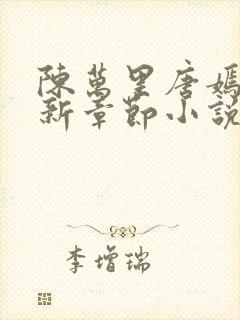 陳萬里唐嫣
新章節小說
李增瑞